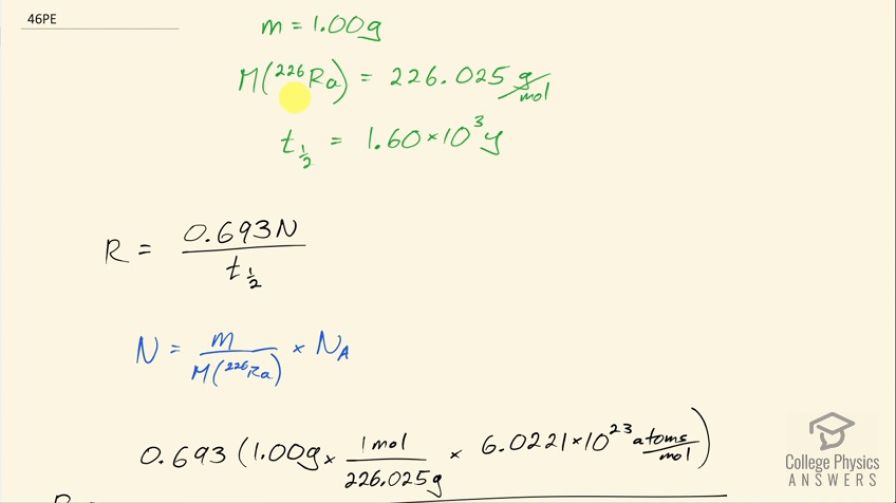 46PE
m = 1.00g
M(²²⁶Ra) = 226.025 g/mol
t½ = 1.60×10³y
R = 0.693N / t½
N = m / M(²²⁶Ra) × N_A
0.693 (1.00g × 1 mol / 226.025g × 6.0221×10²³ atoms/mol)
College Physics
ANSWERS